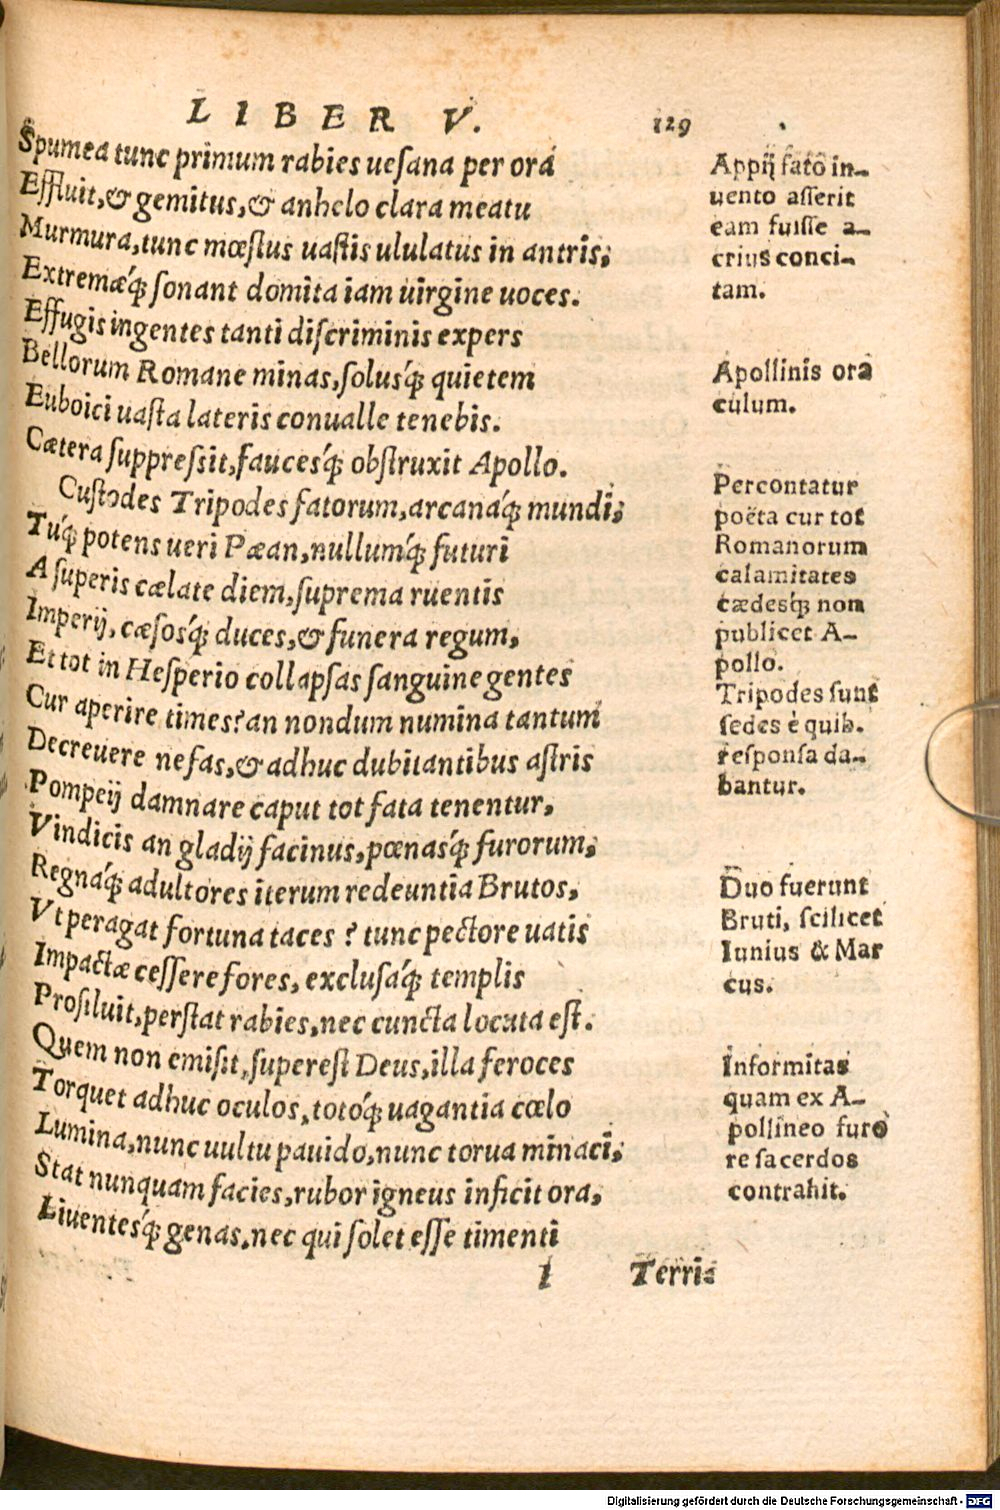 LIBER V. 129
Spumea tunc primum rabies uesana per ora
Effluit, & gemitus, & anhelo clara meatu
Murmura, tunc mœstus uastis ululatus in antris;
Extremæq́; sonant domita iam uirgine uoces.
Effugis ingentes tanti discriminis expers
Bellorum Romane minas, solusq́; quietem
Euboici uasta lateris conualle tenebis.
Cætera suppressit, faucesq́; obstruxit Apollo.
Custodes Tripodes fatorum, arcanaq́; mundi;
Tuq́; potens ueri Pæan, nullumq́; futuri
A superis cælate diem, suprema ruentis
Imperij, cæsosq́; duces, & funera regum,
Et tot in Hesperio collapsas sanguine gentes
Cur aperire times? an nondum numina tantum
Decreuere nefas, & adhuc dubitantibus astris
Pompeij damnare caput tot fata tenentur,
Vindicis an gladij facinus, pœnasq́; furorum;
Regnaq́; adultores iterum redeuntia Brutos,
Vt peragat fortuna taces? tunc pectore uatis
Impactæ cessere fores, exclusaq́; templis
Prosiluit, perstat rabies, nec cuncta locuta est.
Quem non emisit, superest Deus, illa feroces
Torquet adhuc oculos, totoq́; uagantia cœlo
Lumina, nunc uultu pauido, nunc torua minaci;
Stat nunquam facies, rubor igneus inficit ora,
Liuentesq́; genas, nec qui solet esse timenti
l Terri=
Appij fato in-
uento asserit
eam fuisse a-
crius conci-
tam.
Apollinis ora
culum.
Percontatur
poëta cur tot
Romanorum
calamitates
cædesq́; non
publicet A-
pollo.
Tripodes sunt
sedes è quib.
responsa da-
bantur.
Duo fuerunt
Bruti, scilicet
Iunius & Mar
cus.
Informitas
quam ex A-
pollineo furo
re sacerdos
contrahit.
Digitalisierung gefördert durch die Deutsche Forschungsgemeinschaft - DFG